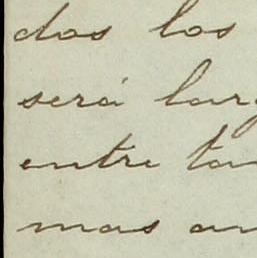 dos los
será larg
entre tan
mas an